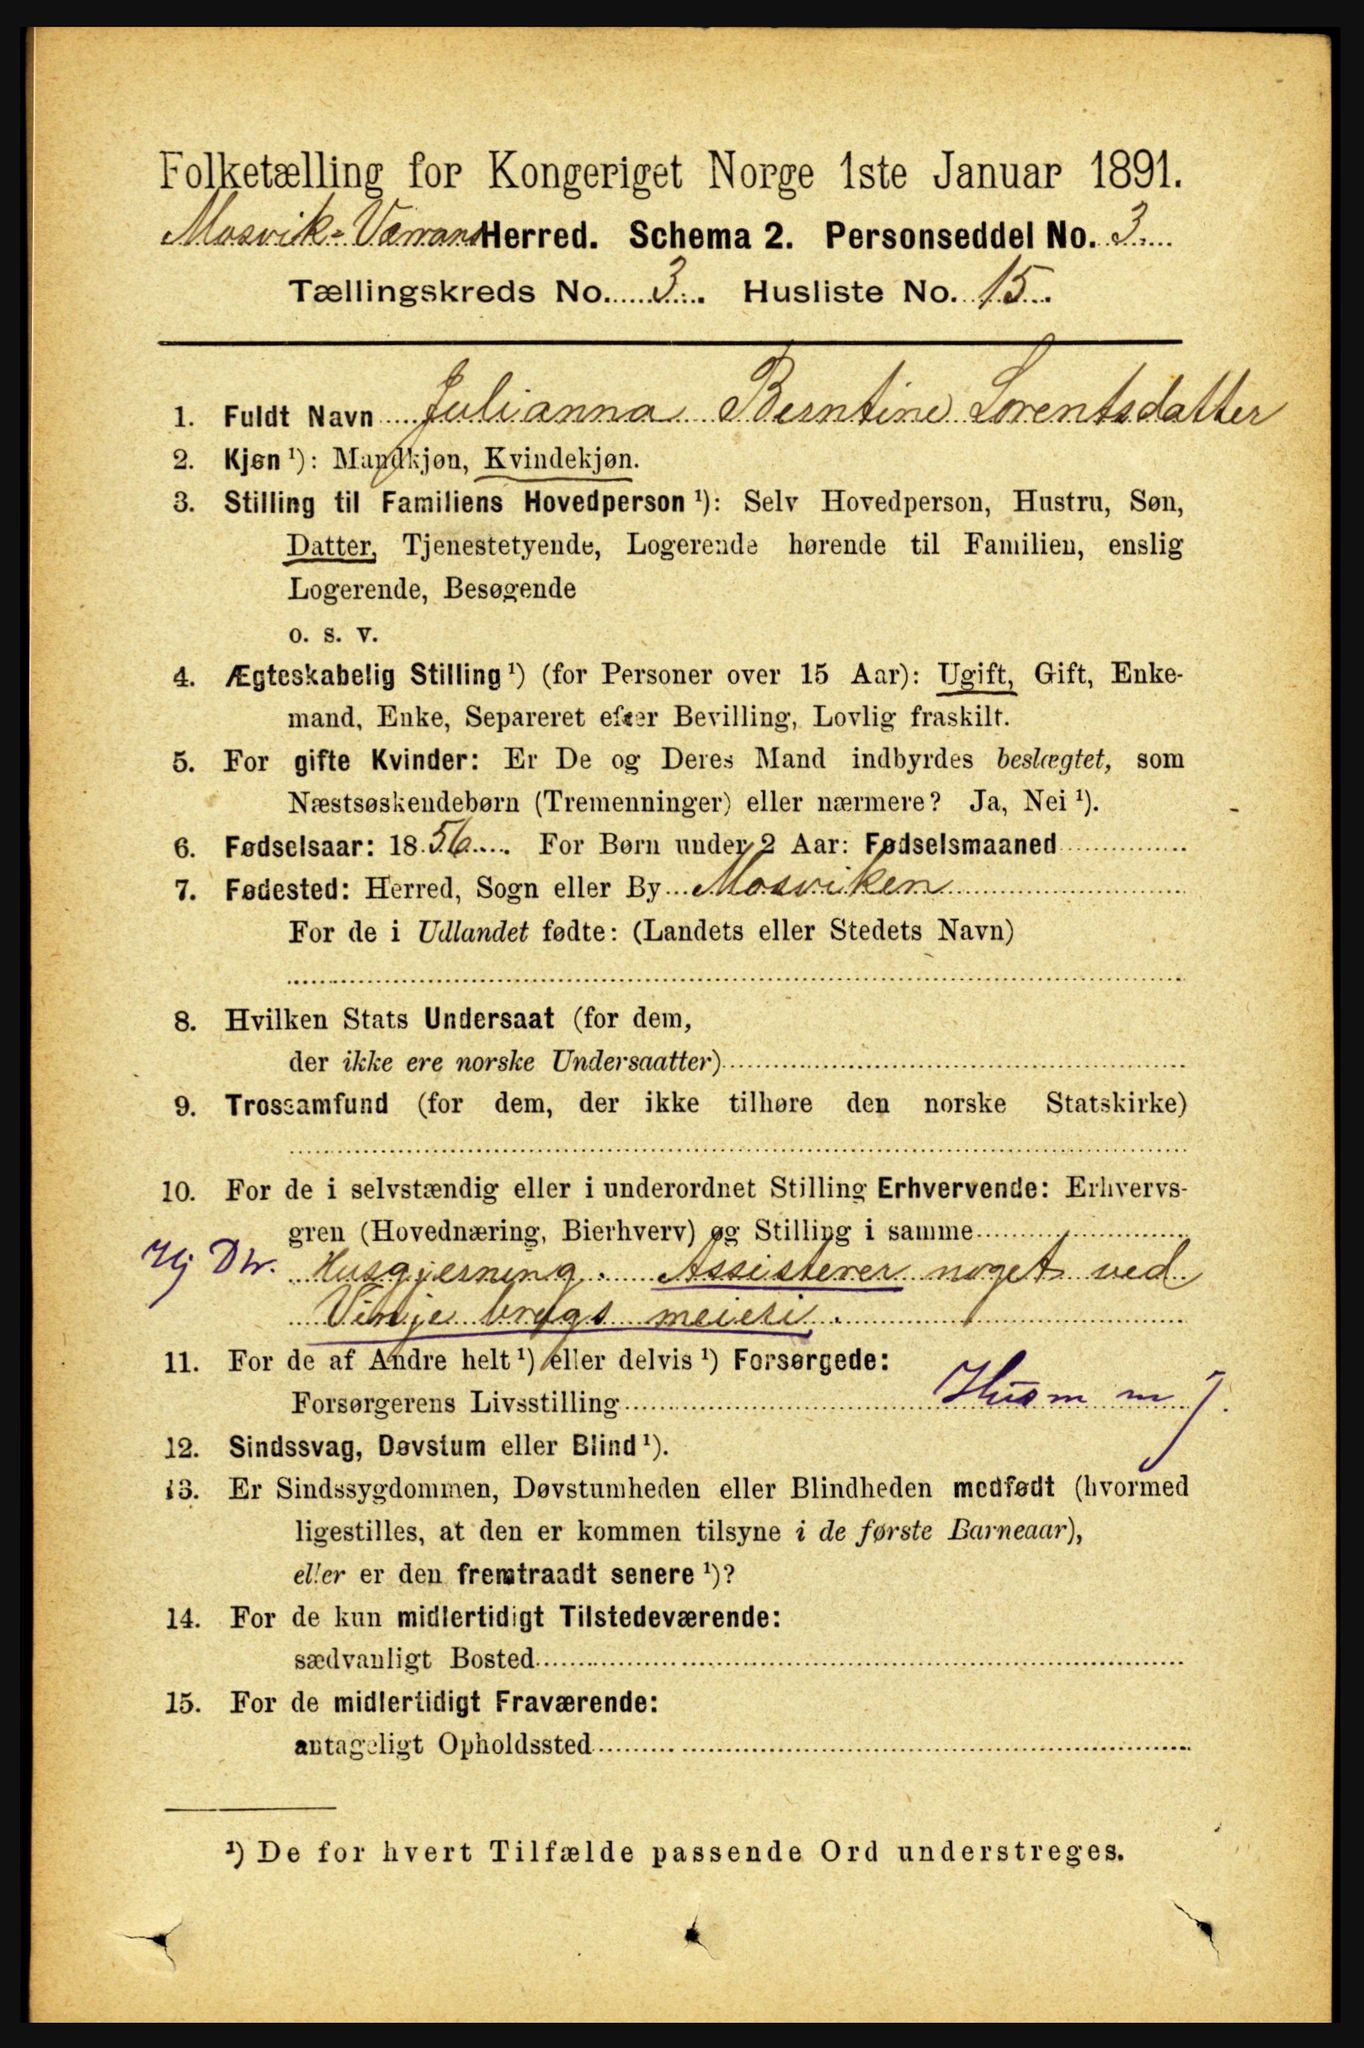 Folketælling for Kongeriget Norge 1ste Januar 1891.
Mosvik-Værrans Herred. Schema 2. Personseddel No. 3.
Tællingskreds No. 3. Husliste No. 15.
1. Fuldt Navn Julianna Berntine Lorentsdatter
2. Kjøn ¹): Mandkjøn, Kvindekjøn.
3. Stilling til Familiens Hovedperson ¹): Selv Hovedperson, Hustru, Søn,
Datter, Tjenestetyende, Logerende hørende til Familien, enslig
Logerende, Besøgende
o. s. v.
4. Ægteskabelig Stilling ¹) (for Personer over 15 Aar): Ugift, Gift, Enke-
mand, Enke, Separeret efter Bevilling, Lovlig fraskilt.
5. For gifte Kvinder: Er De og Deres Mand indbyrdes beslægtet, som
Næstsøskendebørn (Tremenninger) eller nærmere? Ja, Nei ¹).
6. Fødselsaar: 1856. For Børn under 2 Aar: Fødselsmaaned
7. Fødested: Herred, Sogn eller By Mosviken
For de i Udlandet fødte: (Landets eller Stedets Navn)
8. Hvilken Stats Undersaat (for dem,
der ikke ere norske Undersaatter)
9. Trossamfund (for dem, der ikke tilhøre den norske Statskirke)
10. For de i selvstændig eller i underordnet Stilling Erhvervende: Erhvervs-
gren (Hovednæring, Bierhverv) og Stilling i samme
Hj Dtr. Husgjerning. Assisterer noget ved
Vinje brugs meieri.
11. For de af Andre helt ¹) eller delvis ¹) Forsørgede:
Forsørgerens Livsstilling Husm m j.
12. Sindssvag, Døvstum eller Blind ¹).
13. Er Sindssygdommen, Døvstumheden eller Blindheden medfødt (hvormed
ligestilles, at den er kommen tilsyne i de første Barneaar),
eller er den fremtraadt senere ¹)?
14. For de kun midlertidigt Tilstedeværende:
sædvanligt Bosted
15. For de midlertidigt Fraværende:
antageligt Opholdssted
¹) De for hvert Tilfælde passende Ord understreges.